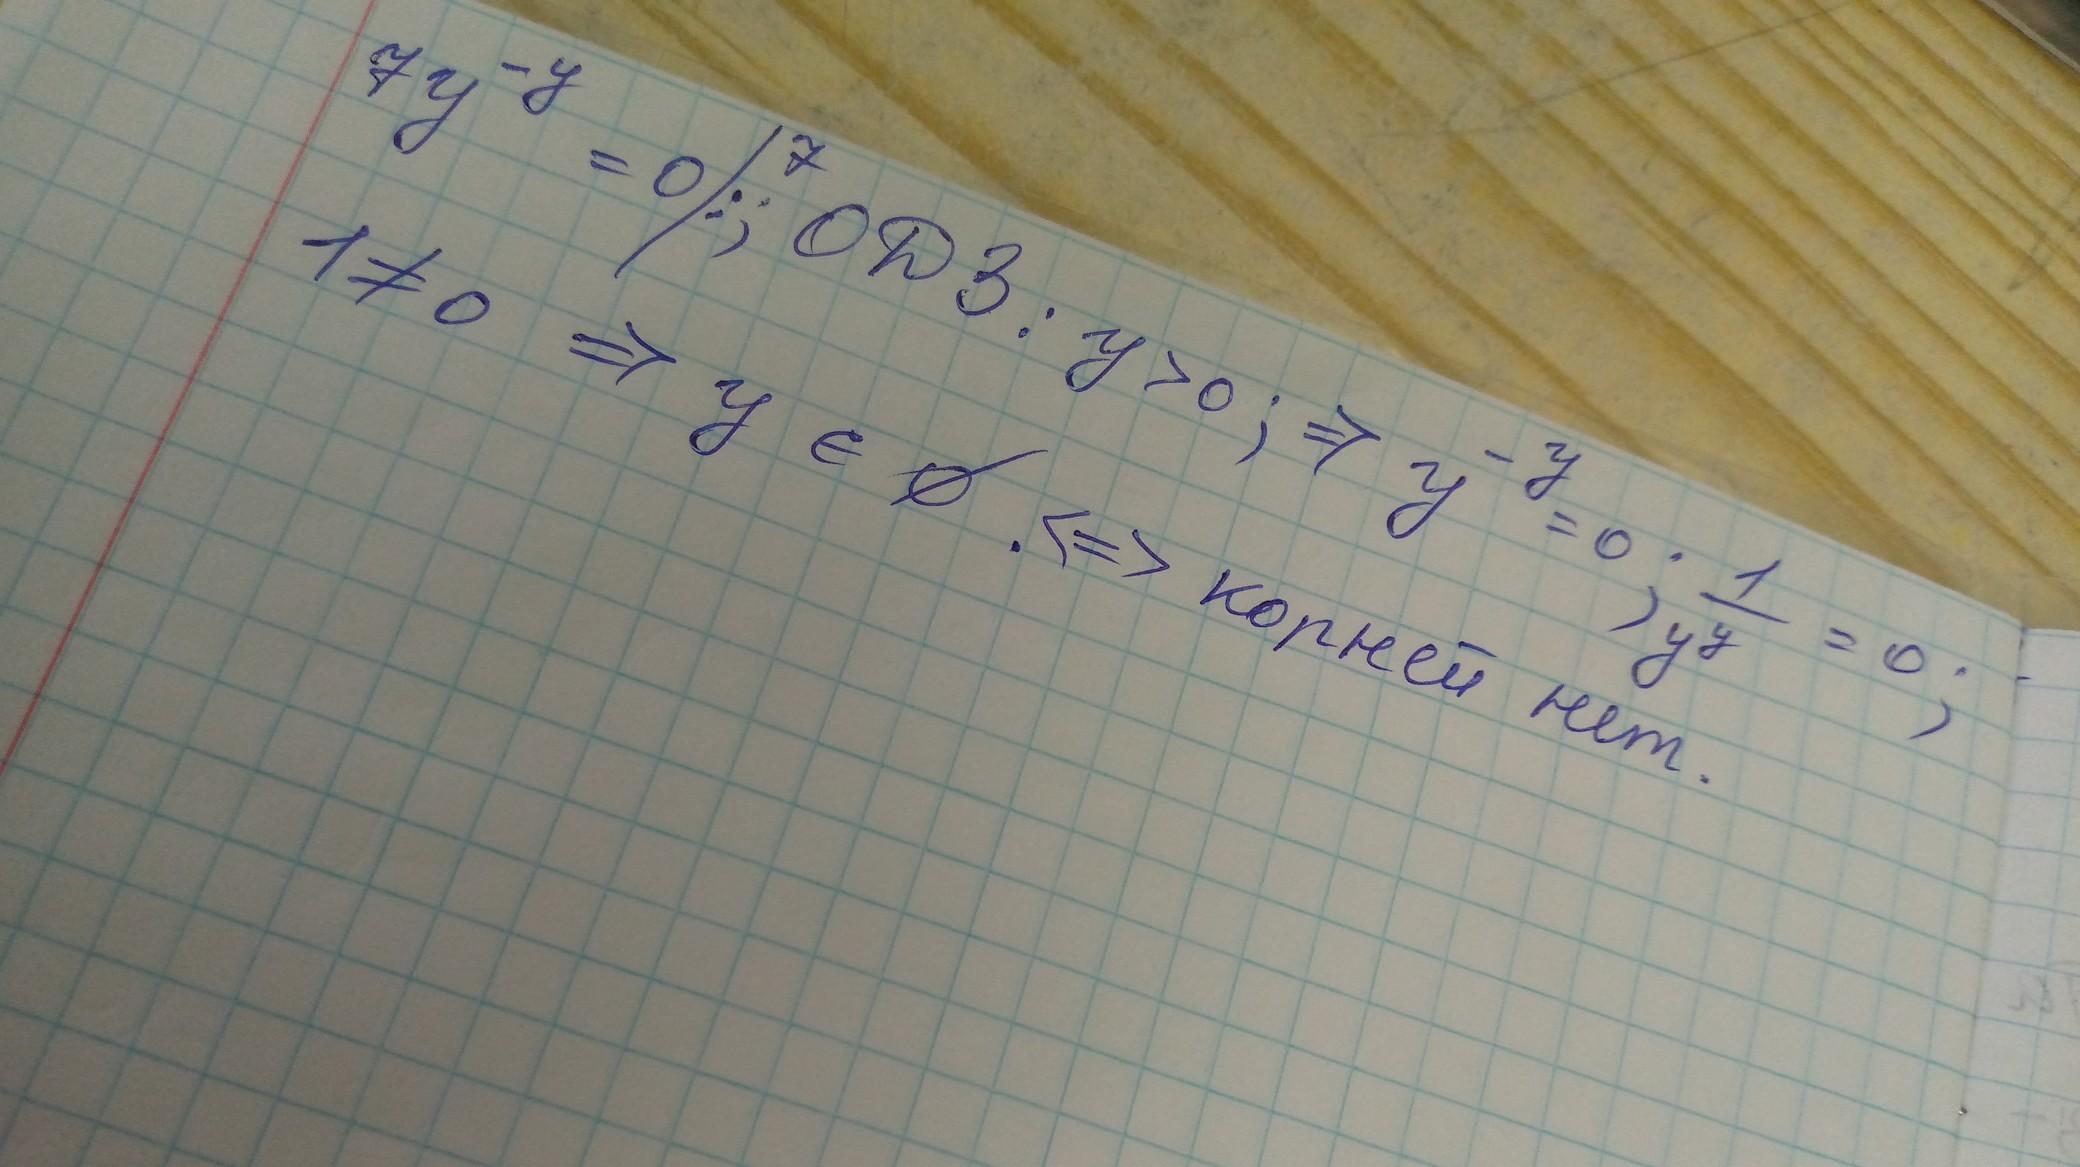 7y^{-y} = 0 /:7; ОДЗ: y > 0; ⇒ y^{-y} = 0; \frac{1}{y^y} = 0;
1 ≠ 0 ⇒ y ∈ ∅. <=> корней нет.